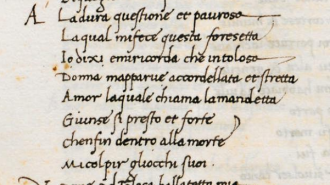 A la dura questione et paurosa
La qual mi fece questa foresetta
Io dixi emi ricorda che intolosa
Donna mapparue accordellata et stretta
Amor laquale chiama lamandetta
Giunse si presto et forte
Chenfin dentro alla morte
Mi colpir gliocchi suoi